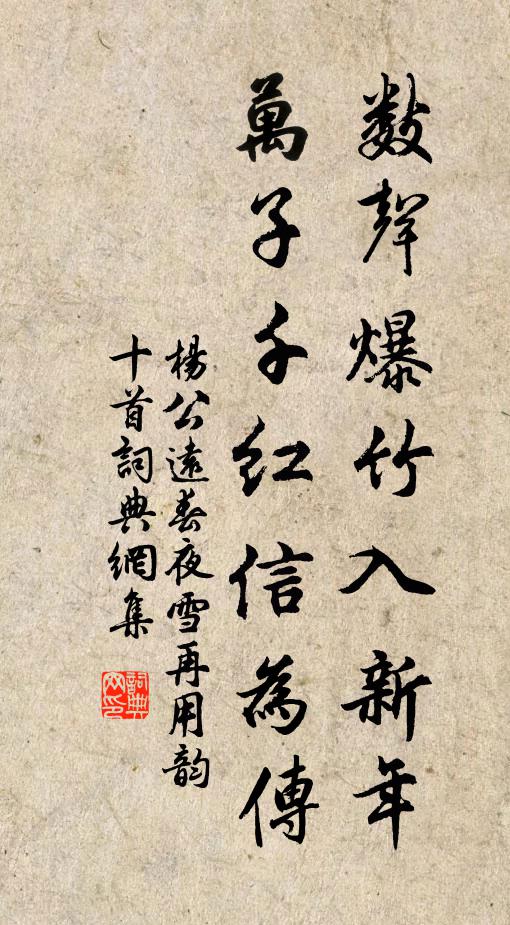 數聲爆竹入新年
萬子千紅信為傳
楊公遠春夜雪再用韵
十首詞典網集
詞典網印